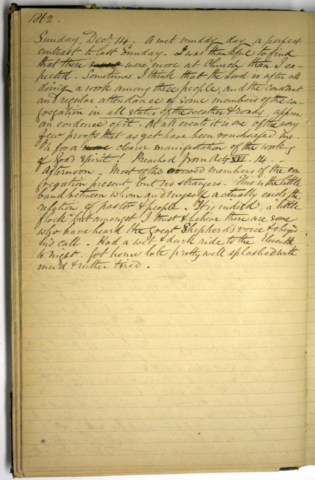 1862.
Sunday, Decr. 14. A wet muddy day, a perfect
contrast to last Sunday. I was thankful to find
that there were more at Church than I ex-
pected. Sometimes I think that the Lord is after all
doing a work among these people, and the constant
and regular attendance of some members of the con-
gregation in all states of the weather & roads
an evidence of it. At all events it is one of the very
few proofs that as yet have been vouchsafed me.
Oh for a closer manifestation of the work
of God's Spirit! Preached from Acts XVI. 14.
Afternoon. Most of the members of the con-
gregation present but no strangers. This is the little
band between whom and myself actually exists the
relation of pastor & people. It is indeed a little
flock but amongst I trust & believe there are some
who have heard the great Shepherd's voice & obeyed
his call. Had a wet & dark ride to the
to meet. Got home late pretty well splashed with
mud & rather tired.